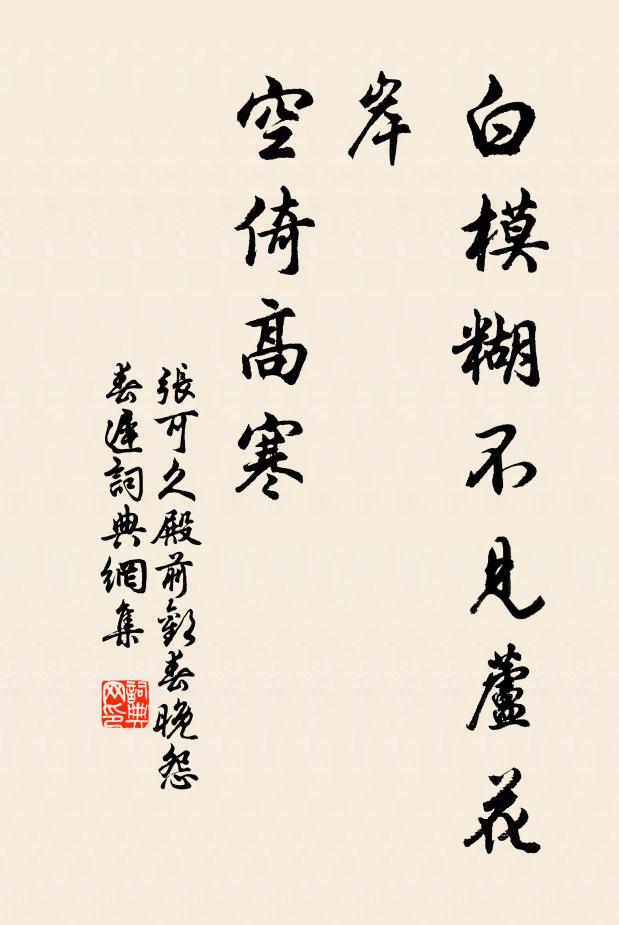 白模糊不見蘆花
岸
空倚高寒
張可久殿前歡春晚怨
春遲詞典網集
詞典
网印